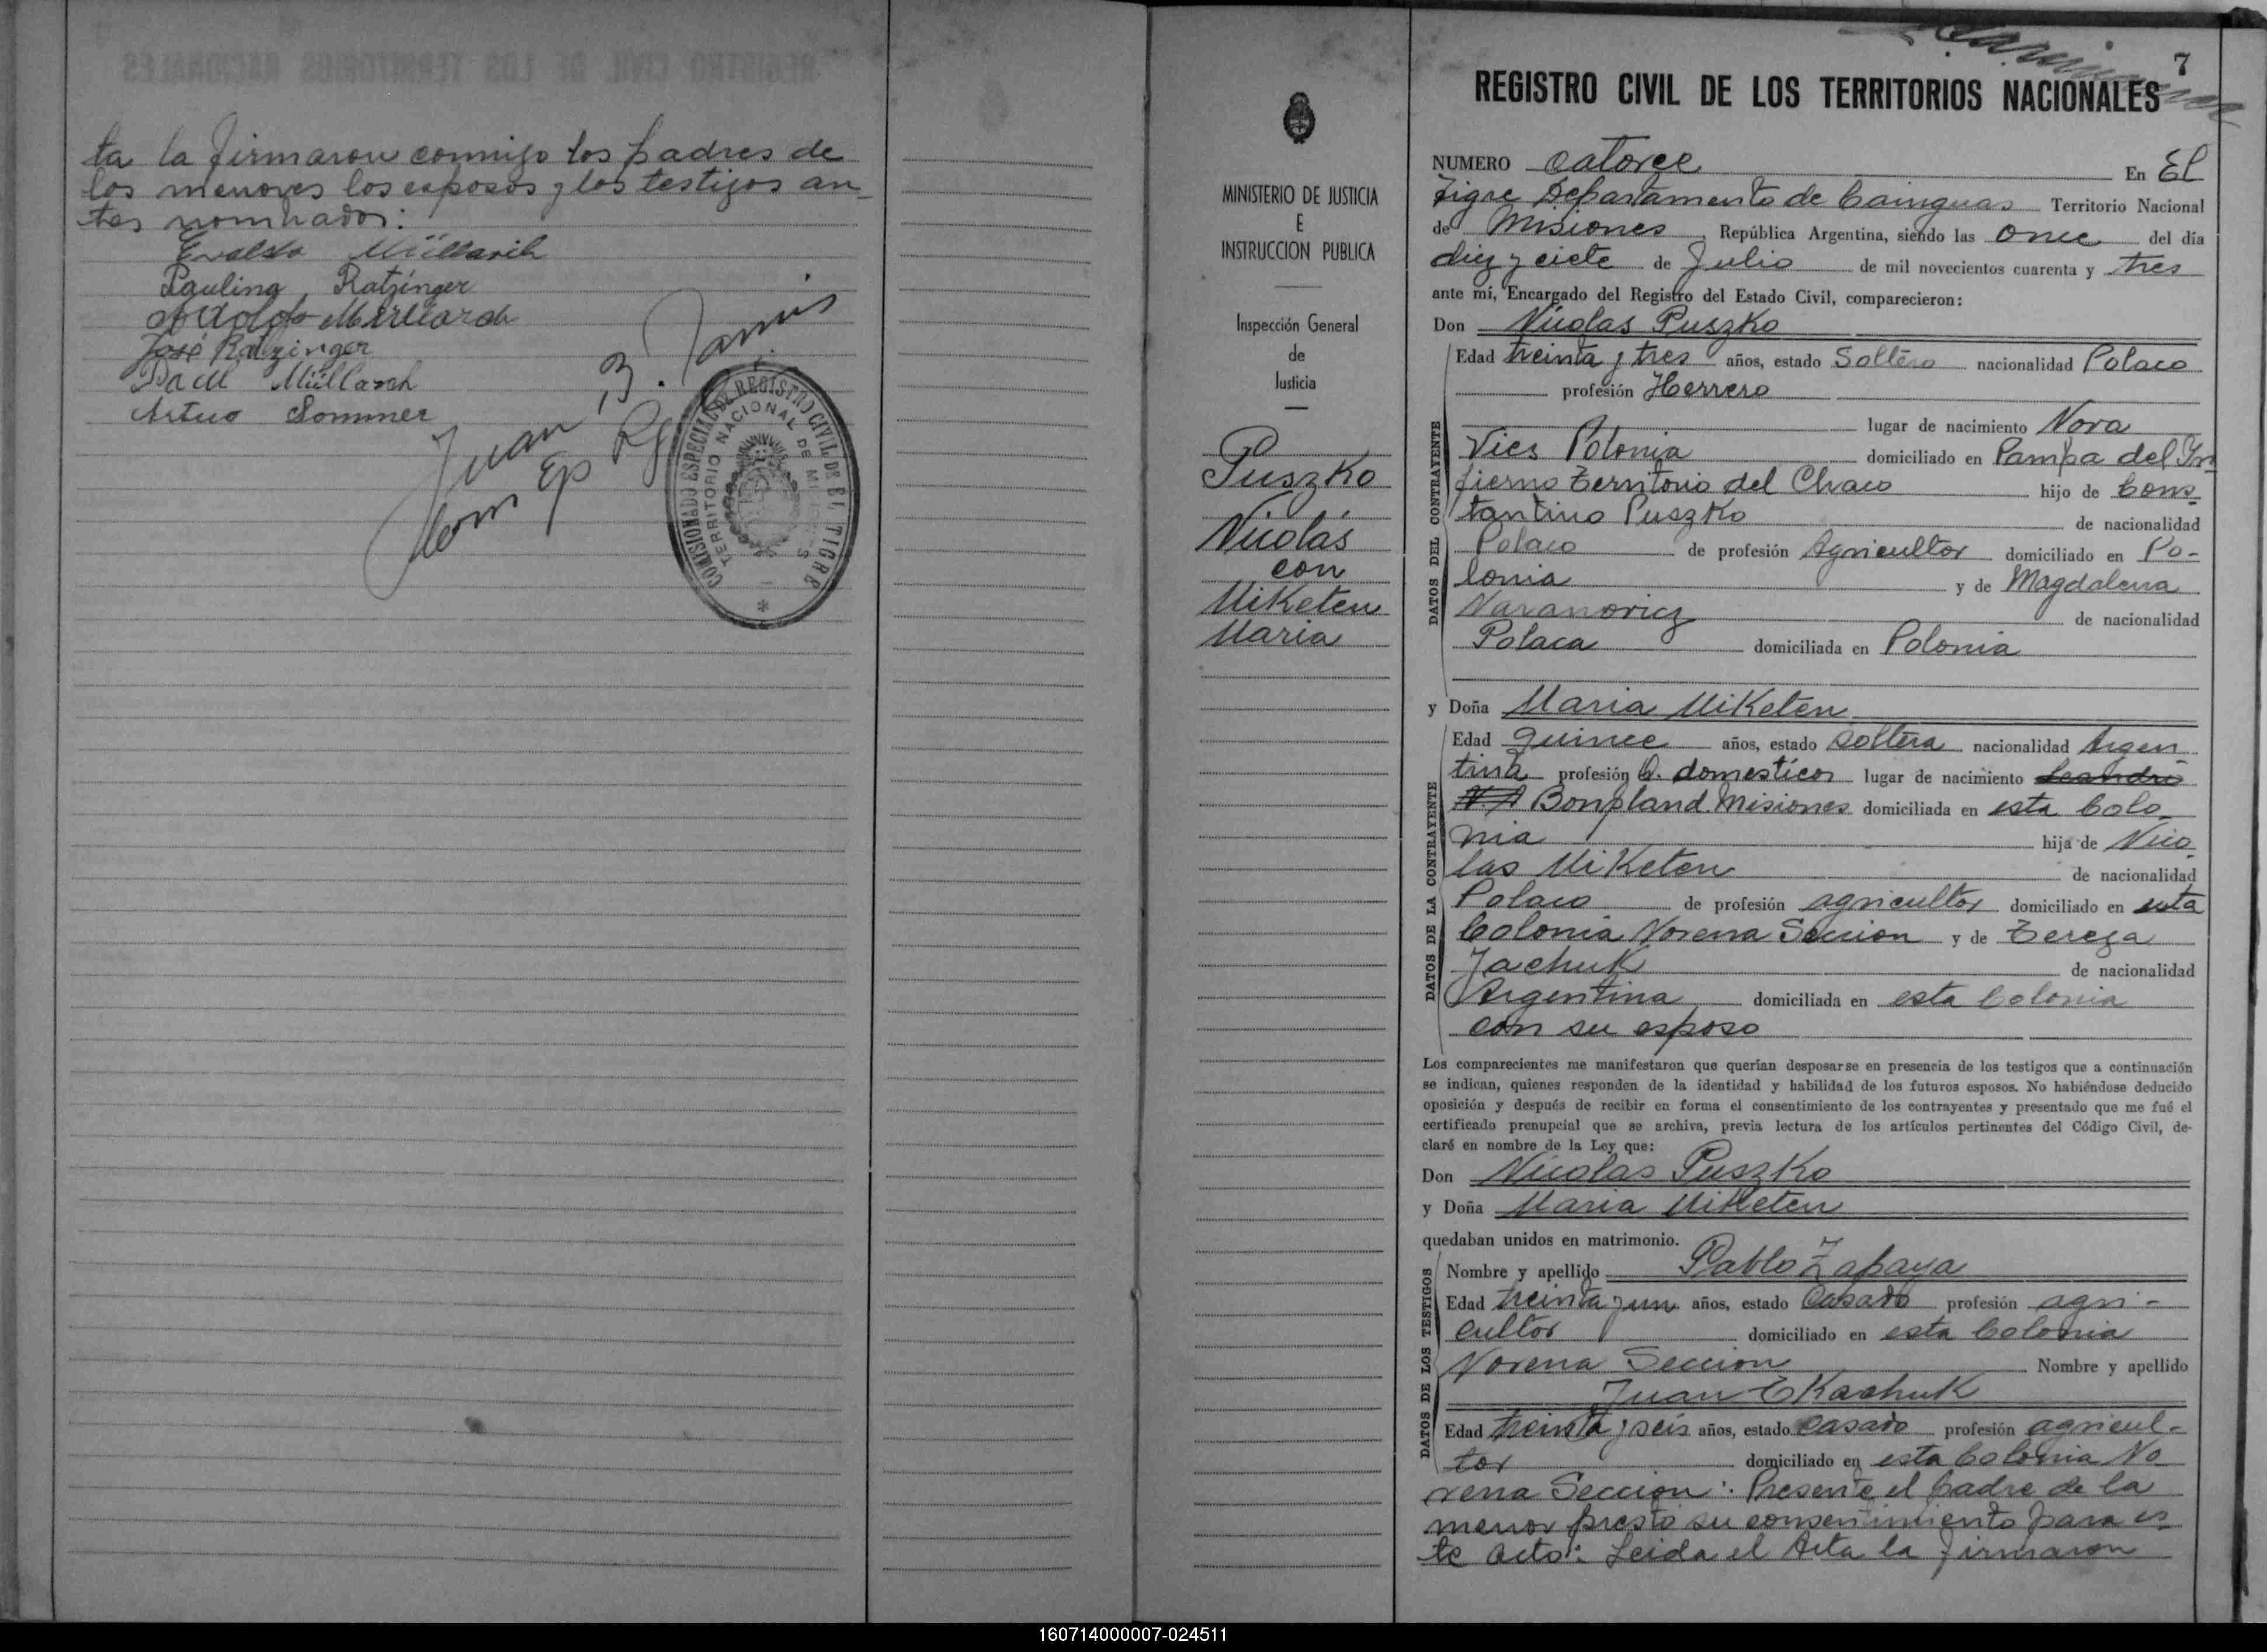 ta la firmaron conmigo los padres de
los menores los esposos y los testigos an-
tes nombrados:
Evaldo Müllarih
Paulina Ratzinger
Adolfo Mirllarch
José Ratzinger
Müllasch
Arturo Sommer
Juan B.
COMISIONADO ESPECIAL DE REGISTRO CIVIL DE EL TIGRE
TERRITORIO NACIONAL DE MISIONES
MINISTERIO DE JUSTICIA
E
INSTRUCCION PUBLICA
Inspección General
de
Justicia
Puszko
Nicolás
con
Miketen
Maria
7
REGISTRO CIVIL DE LOS TERRITORIOS NACIONALES
NUMERO catorce En El
Tigre Departamento de Cainguas Territorio Nacional
de Misiones, República Argentina, siendo las once del día
diez y ciete de Julio de mil novecientos cuarenta y tres
ante mí, Encargado del Registro del Estado Civil, comparecieron:
Don Nicolas Puszko
DATOS DEL CONTRAYENTE
Edad treinta y tres años, estado Soltero nacionalidad Polaco
profesión Herrero
lugar de nacimiento Nova
Vies Polonia domiciliado en Pampa del In-
fierno Territorio del Chaco hijo de Cons-
tantino Puszko de nacionalidad
Polaco de profesión Agricultor domiciliado en Po-
lonia y de Magdalena
Naranovicz de nacionalidad
Polaca domiciliada en Polonia
y Doña Maria Miketen
DATOS DE LA CONTRAYENTE
Edad quince años, estado soltera nacionalidad Argen-
tina profesión Q. domesticos lugar de nacimiento Leandro
N. A Bonpland Misiones domiciliada en esta Colo-
nia hija de Nico-
las Miketen de nacionalidad
Polaco de profesión agricultor domiciliado en esta
Colonia Novena Seccion y de Tereza
Jachuk de nacionalidad
Argentina domiciliada en esta Colonia
con su esposo
Los comparecientes me manifestaron que querían desposarse en presencia de los testigos que a continuación
se indican, quienes responden de la identidad y habilidad de los futuros esposos. No habiéndose deducido
oposición y después de recibir en forma el consentimiento de los contrayentes y presentado que me fué el
certificado prenupcial que se archiva, previa lectura de los artículos pertinentes del Código Civil, de-
claré en nombre de la Ley que:
Don Nicolas Puszko
y Doña Maria Miketen
quedaban unidos en matrimonio.
DATOS DE LOS TESTIGOS
Nombre y apellido Pablo Zapaya
Edad treinta y un años, estado Casado profesión agri-
cultor domiciliado en esta Colonia
Novena Seccion Nombre y apellido
Juan Tkachuk
Edad treinta y seis años, estado casado profesión agricul-
tor domiciliado en esta Colonia No
vena Seccion: Presente el padre de la
menor presto su consentimiento para es-
te acto: Leida el Acta la firmaron
160714000007-024511